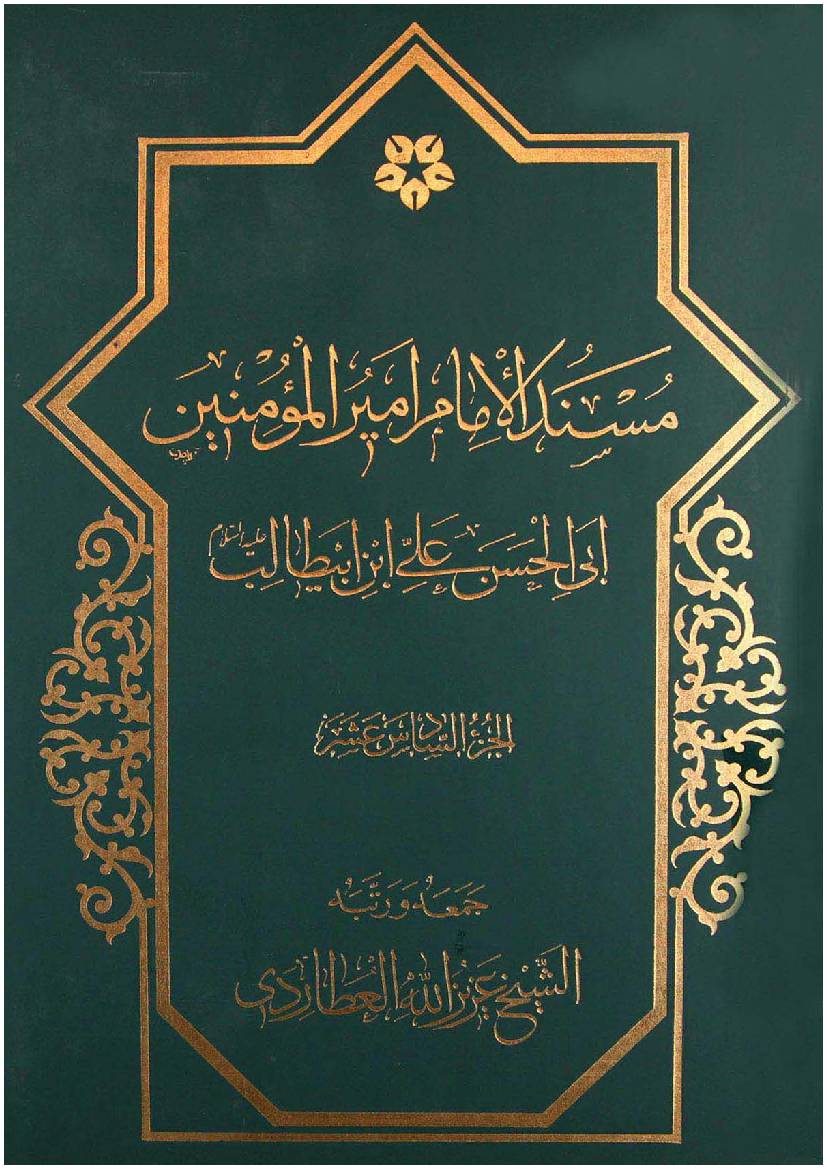 مُسْنَدُ الْإِمَامِ أَمِيرِ الْمُؤْمِنِينَ
أَبِي الْحَسَنِ عَلِيِّ ابْنِ ابيطَالِب عليه السلام
الجُزءُ السَّادِسَ عَشَرَ
جَمَعَهُ وَرَتَّبَهُ
الشَّيْخُ عَزِيزُ اللهِ العُطَارِدِي